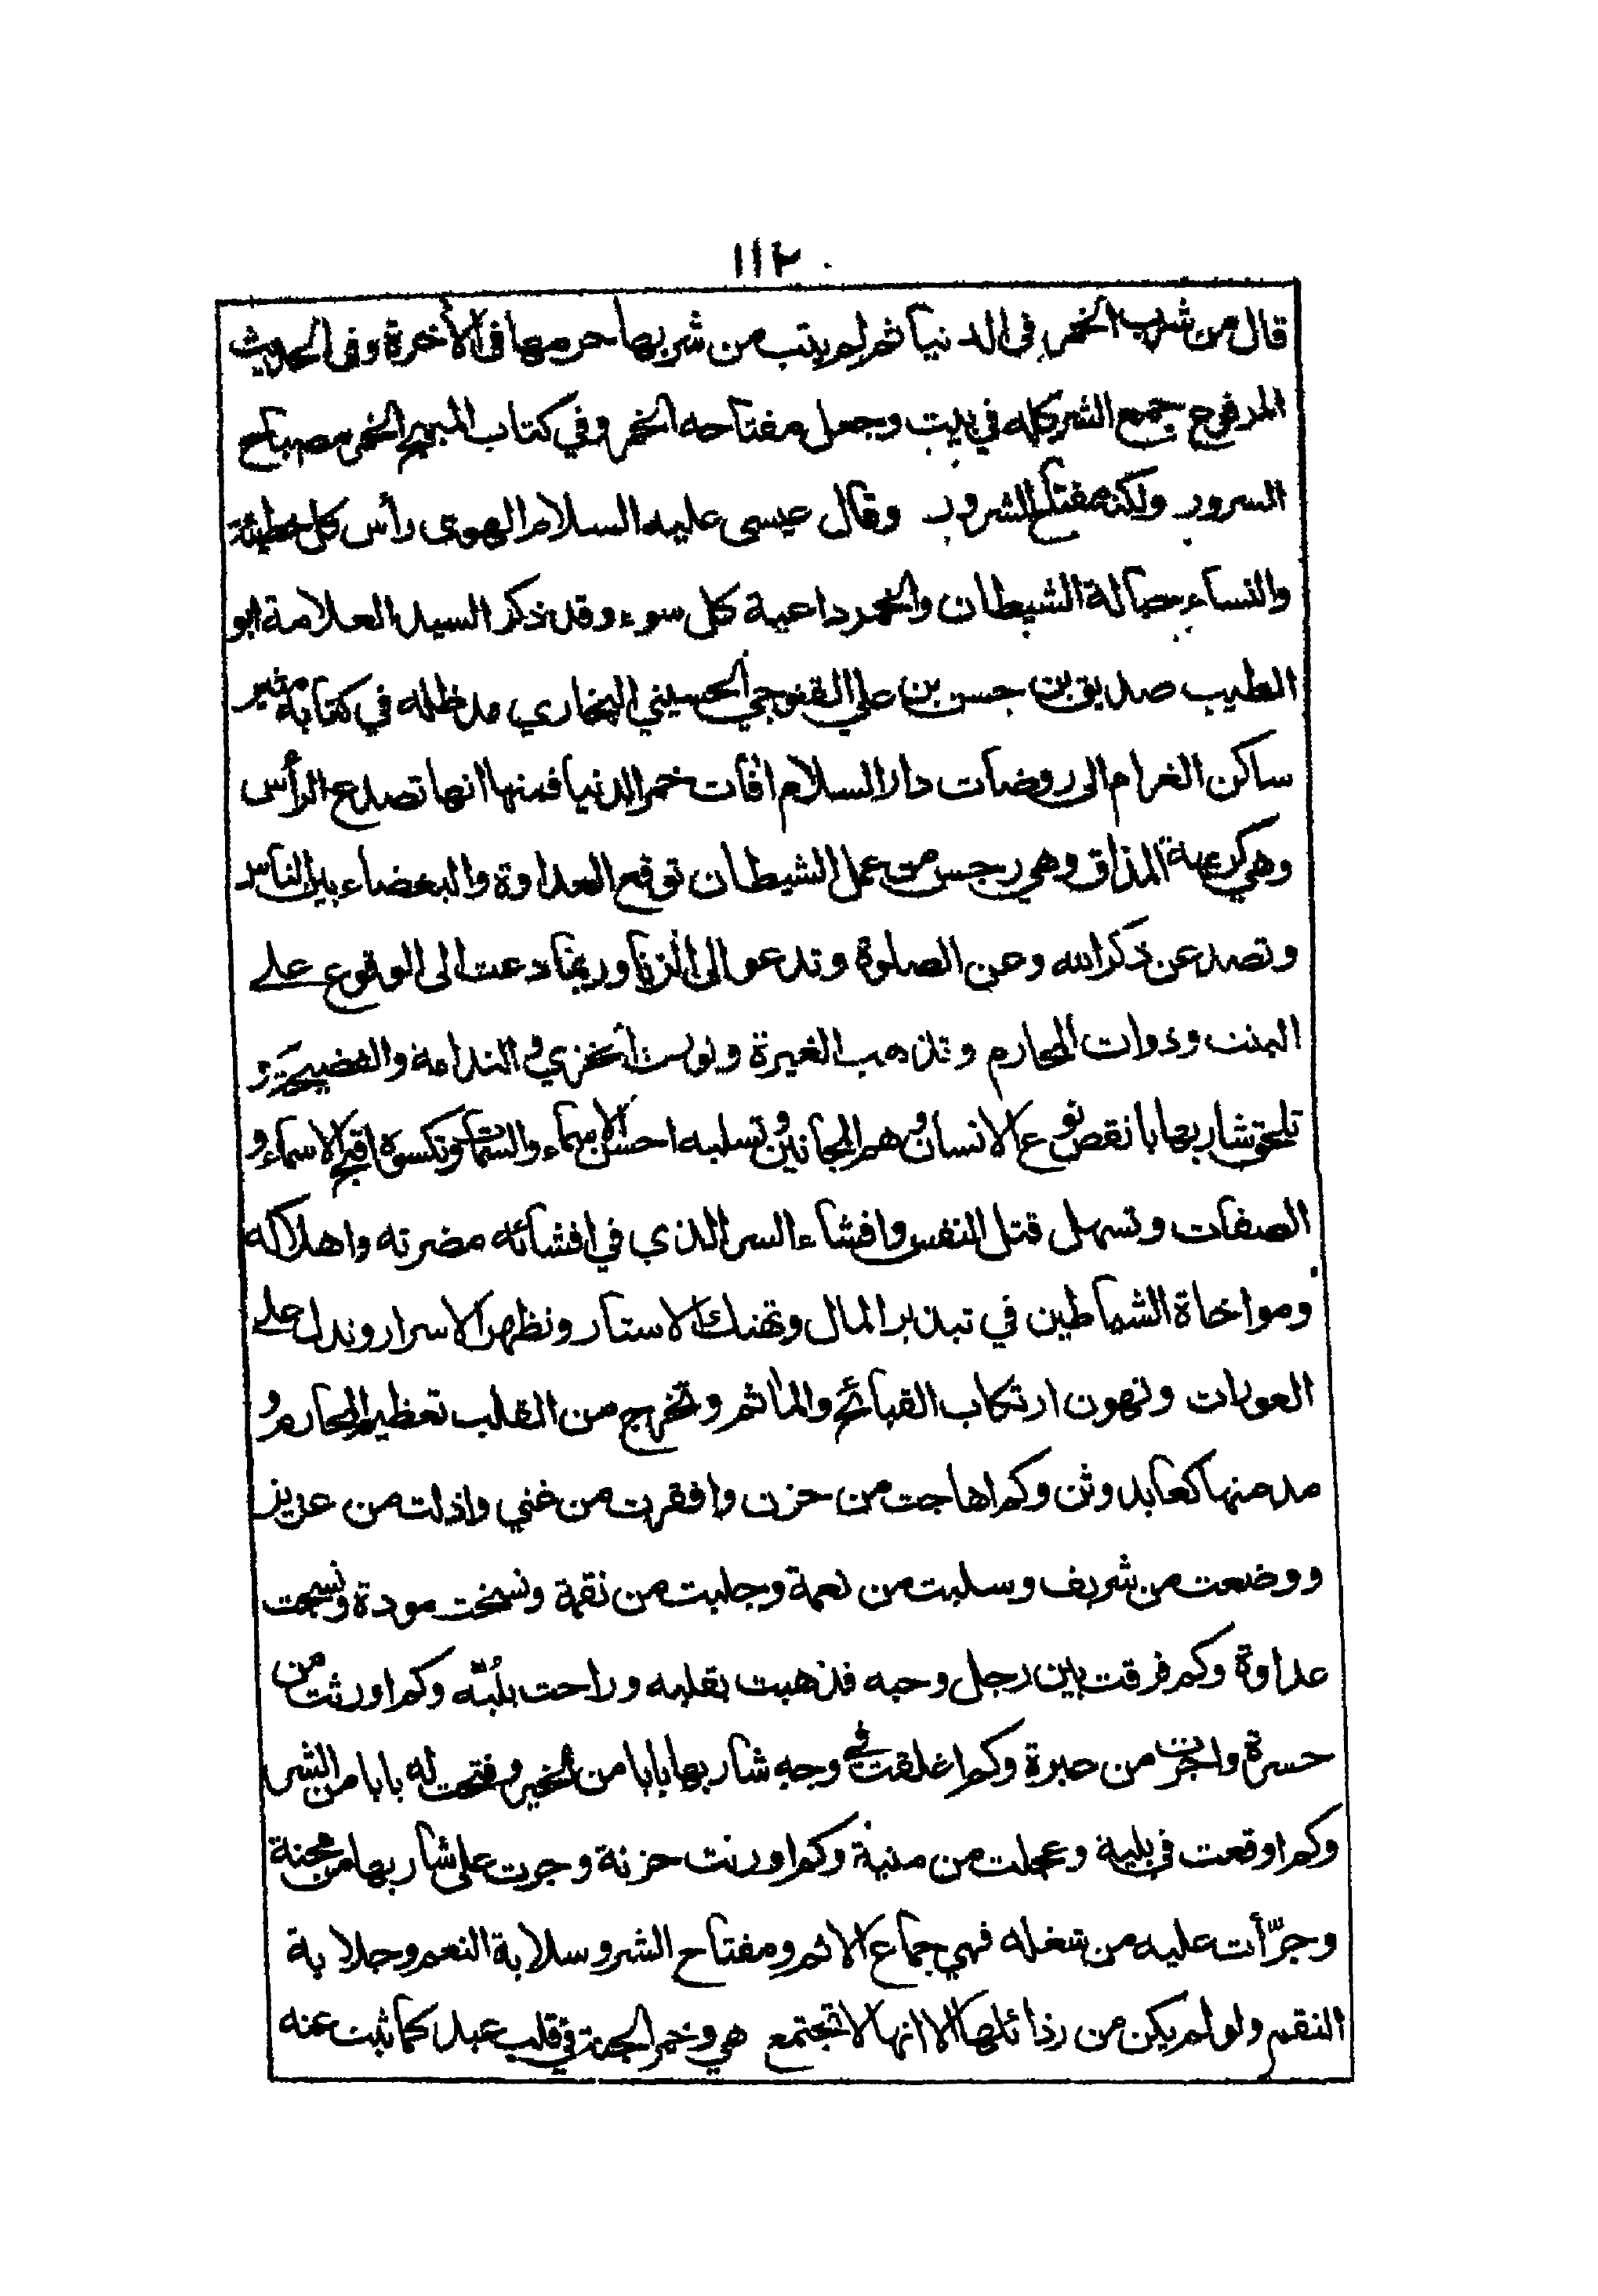 ١١٢
قال من شرب الخمر فى الدنيا ثم لم يتب من شربها حرمها فى الأخرة وفى الحديث
المرفوع جمع الشر كله في بيت وجعل مفتاحه الخمر وفي كتاب المبهج الخمر مصباح
السرور ولكنه مفتاح الشرور وقال عيسى عليه السلام الهوى رأس كل خطيئة
والنساء حبالة الشيطان والخمر داعية كل سوء وقد ذكر السيد العلامة ابو
الطيب صديق بن حسن بن علي القنوجي الحسيني البخاري مد ظله في كتابه مثير
ساكن الغرام الى روضات دار السلام افات خمر الدنيا فمنها انها تصدع الرأس
وهي كريهة المذاق وهي رجس من عمل الشيطان توقع العداوة والبغضاء بين الناس
وتصد عن ذكر الله وعن الصلوة وتدعو الى الزنا وربما دعت الى الوقوع على
البنت وذوات المحارم وتذهب الغيرة وتورث الخزي والندامة والفضيحة و
تلحق شاربها بانقص نوع الانسان وهم المجانين وتسلبه احسن الاسماء والسمات وتكسوة اقبح الاسماء و
الصفات وتسهل قتل النفس وافشاء السر الذي في افشائه مضرته واهلاكه
ومواخاة الشياطين في تبذير المال وتهتك الاستار وتظهر الاسرار وتدل على
العورات وتهون ارتكاب القبائح والمأثم وتخرج من القلب تعظيم المحارم و
مدمنها كعابد وثن وكم اهاجت من حزن وافقرت من غني واذلت من عزيز
ووضعت من شريف وسلبت من نعمة وجلبت من نقمة ونسخت مودة ونسجت
عداوة وكم فرقت بين رجل وحبه فذهبت بقلبه وراحت بلُبّه وكم اورثت من
حسرة واجرت من عبرة وكم اغلقت في وجه شاربها بابا من الخير وفتحت له بابا من الشر
وكم اوقعت في بلية وعجلت من منية وكم اورثت حزنة وجرت على شاربها من محنة
وجرّأت عليه من سفلة فهي جماع الاثم ومفتاح الشر وسلابة النعم وجلابة
النقم ولو لم يكن من رذائلها الا انها لا تجتمع هي وخمر الجنة في قلب عبد كما ثبت عنه